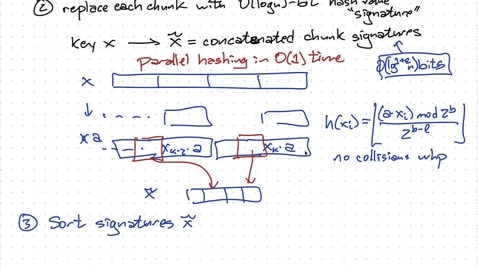 ② replace each chunk with O(log n)-bit hash value
"signature"
key x → x̃ = concatenated chunk signatures
parallel hashing in O(1) time
O(lg^{1+ε} n) bits
x
x·a
x_{k-2}·a
x_k·a
h(x_i) = ⌊(a·x_i) mod 2^b / 2^{b-ℓ}⌋
no collisions whp
x̃
③ Sort signatures x̃